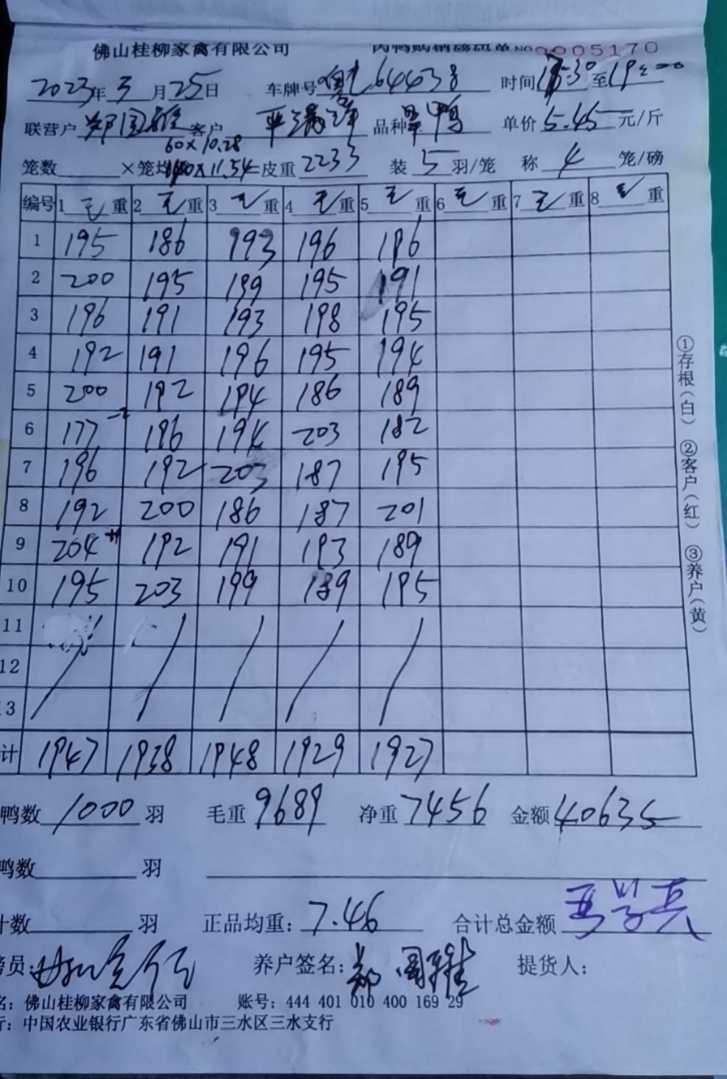 佛山桂柳家禽有限公司 肉鸭购销磅码单 № 0005170
2023年3月25日 车牌号 64438 时间 :30至19:00
联营户 郑国雅 客户 品种 鸭 单价5.45元/斤
60×10.28
笼数 ×笼均140×11.54 皮重2233 装5羽/笼 称4笼/磅
编号 1毛重 2毛重 3毛重 4毛重 5毛重 6毛重 7毛重 8毛重
1 195 186 193 196 196
2 200 195 199 195 191
3 196 191 193 198 195
4 192 191 196 195 194
5 200 192 194 186 189
6 177 196 194 203 182
7 196 192 203 187 195
8 192 200 186 187 201
9 204 192 191 193 189
10 195 203 199 189 195
11
12
13
计 1947 1938 1948 1929 1927
鸭数1000羽 毛重9689 净重7456 金额40635
鸭数 羽
计数 羽 正品均重:7.46 合计总金额
员: 养户签名:郑国雅 提货人:
名:佛山桂柳家禽有限公司 账号:444 401 010 400 169 29
行:中国农业银行广东省佛山市三水区三水支行
①存根(白) ②客户(红) ③养户(黄)